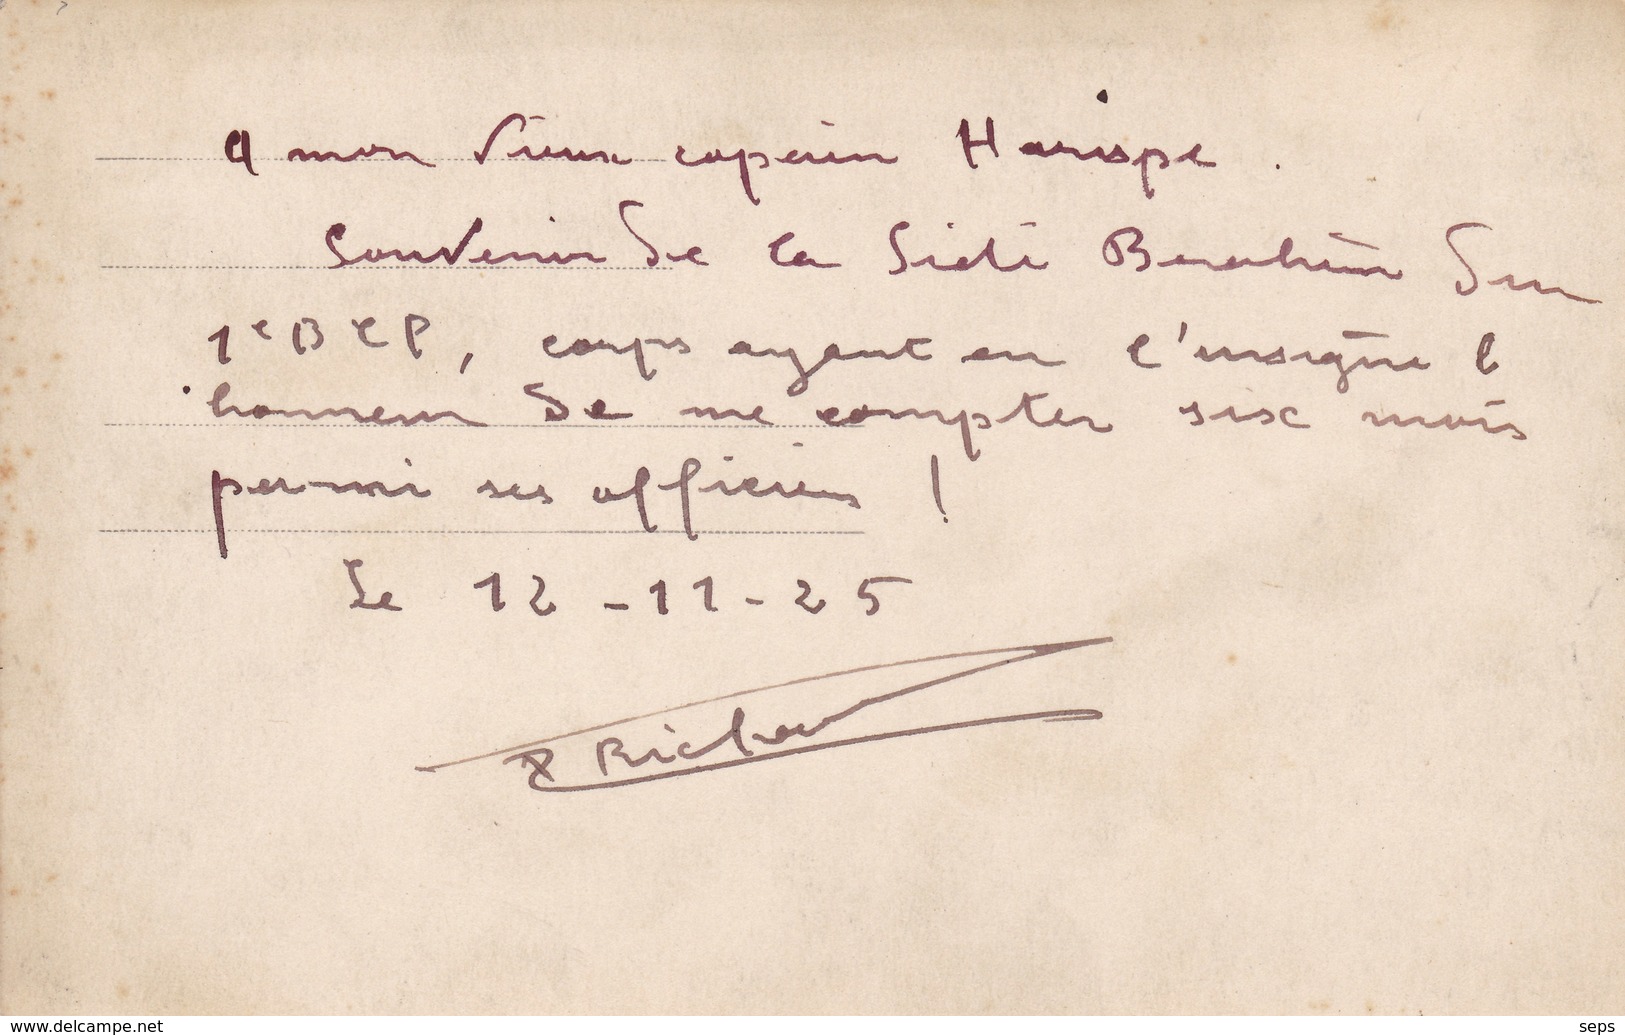 A mon vieux copain Harispe.
Souvenir de la Sidi Brahim du
1e BCP, corps ayant eu l'insigne l
honneur de me compter six mois
parmi ses officiers !
Le 12-11-25
P Richa
www.delcampe.net
seps